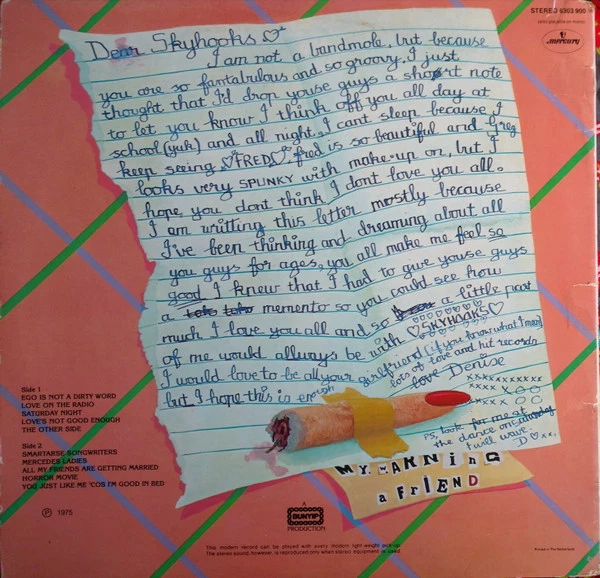 STEREO 6303 900
also playable on mono
mercury
Dear Skyhooks
I am not a bandmole, but because
you are so fantabulous and so groovy. I just
thought that I'd drop youse guys a short note
to let you know I think off you all day at
school (yuk) and all night. I cant sleep because I
keep seeing FRED. Fred is so beautiful and greg
looks very SPUNKY with make-up on, but I
hope you dont think I dont love you all.
I am writting this letter mostly because
I've been thinking and dreaming about all
you guys for ages, you all make me feel so
good I knew that I had to give youse guys
a memento so you could see how
much I love you all and so a little part
of me would allways be with SKYHOOKS
I would love to be all your girlfriend (if you know what I mean)
but I hope this is enough
lots of love and hit records
love Denise
xxxxxxxxxx
xxxx XOO
xxxx OO
PS. look for me at
the dance on saturday
I will wave.
D xx.
MY WARNiNG
a FRiEND
Side 1
EGO IS NOT A DIRTY WORD
LOVE ON THE RADIO
SATURDAY NIGHT
LOVE'S NOT GOOD ENOUGH
THE OTHER SIDE
Side 2
SMARTARSE SONGWRITERS
MERCEDES LADIES
ALL MY FRIENDS ARE GETTING MARRIED
HORROR MOVIE
YOU JUST LIKE ME 'COS I'M GOOD IN BED
Ⓟ 1975
A
BUNYIP
PRODUCTION
This modern record can be played with every modern light weight pick-up
The stereo sound, however, is reproduced only when stereo equipment is used
Printed in The Netherlands